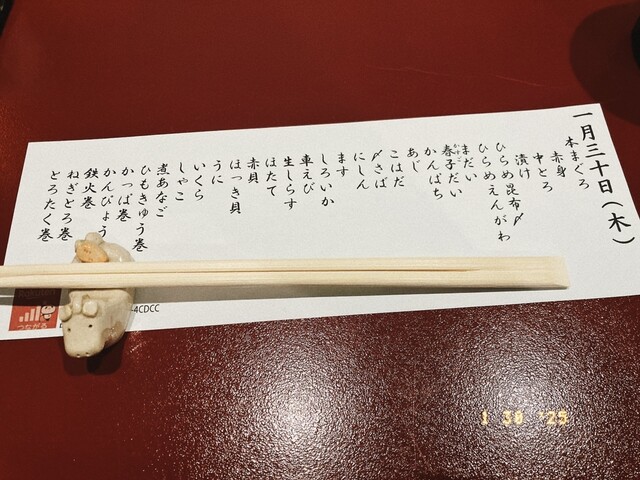 一月三十日(木)
本まぐろ
赤身
中とろ
漬け
ひらめ昆布〆
ひらめえんがわ
まだい
春子だい
かすご
かんぱち
あじ
こはだ
〆さば
にしん
ます
しろいか
車えび
生しらす
ほたて
赤貝
ほっき貝
うに
いくら
しゃこ
煮あなご
ひもきゅう巻
かっぱ巻
かんぴょう
鉄火巻
ねぎとろ巻
とろたく巻
つながる
4CDCC
1 30 '25